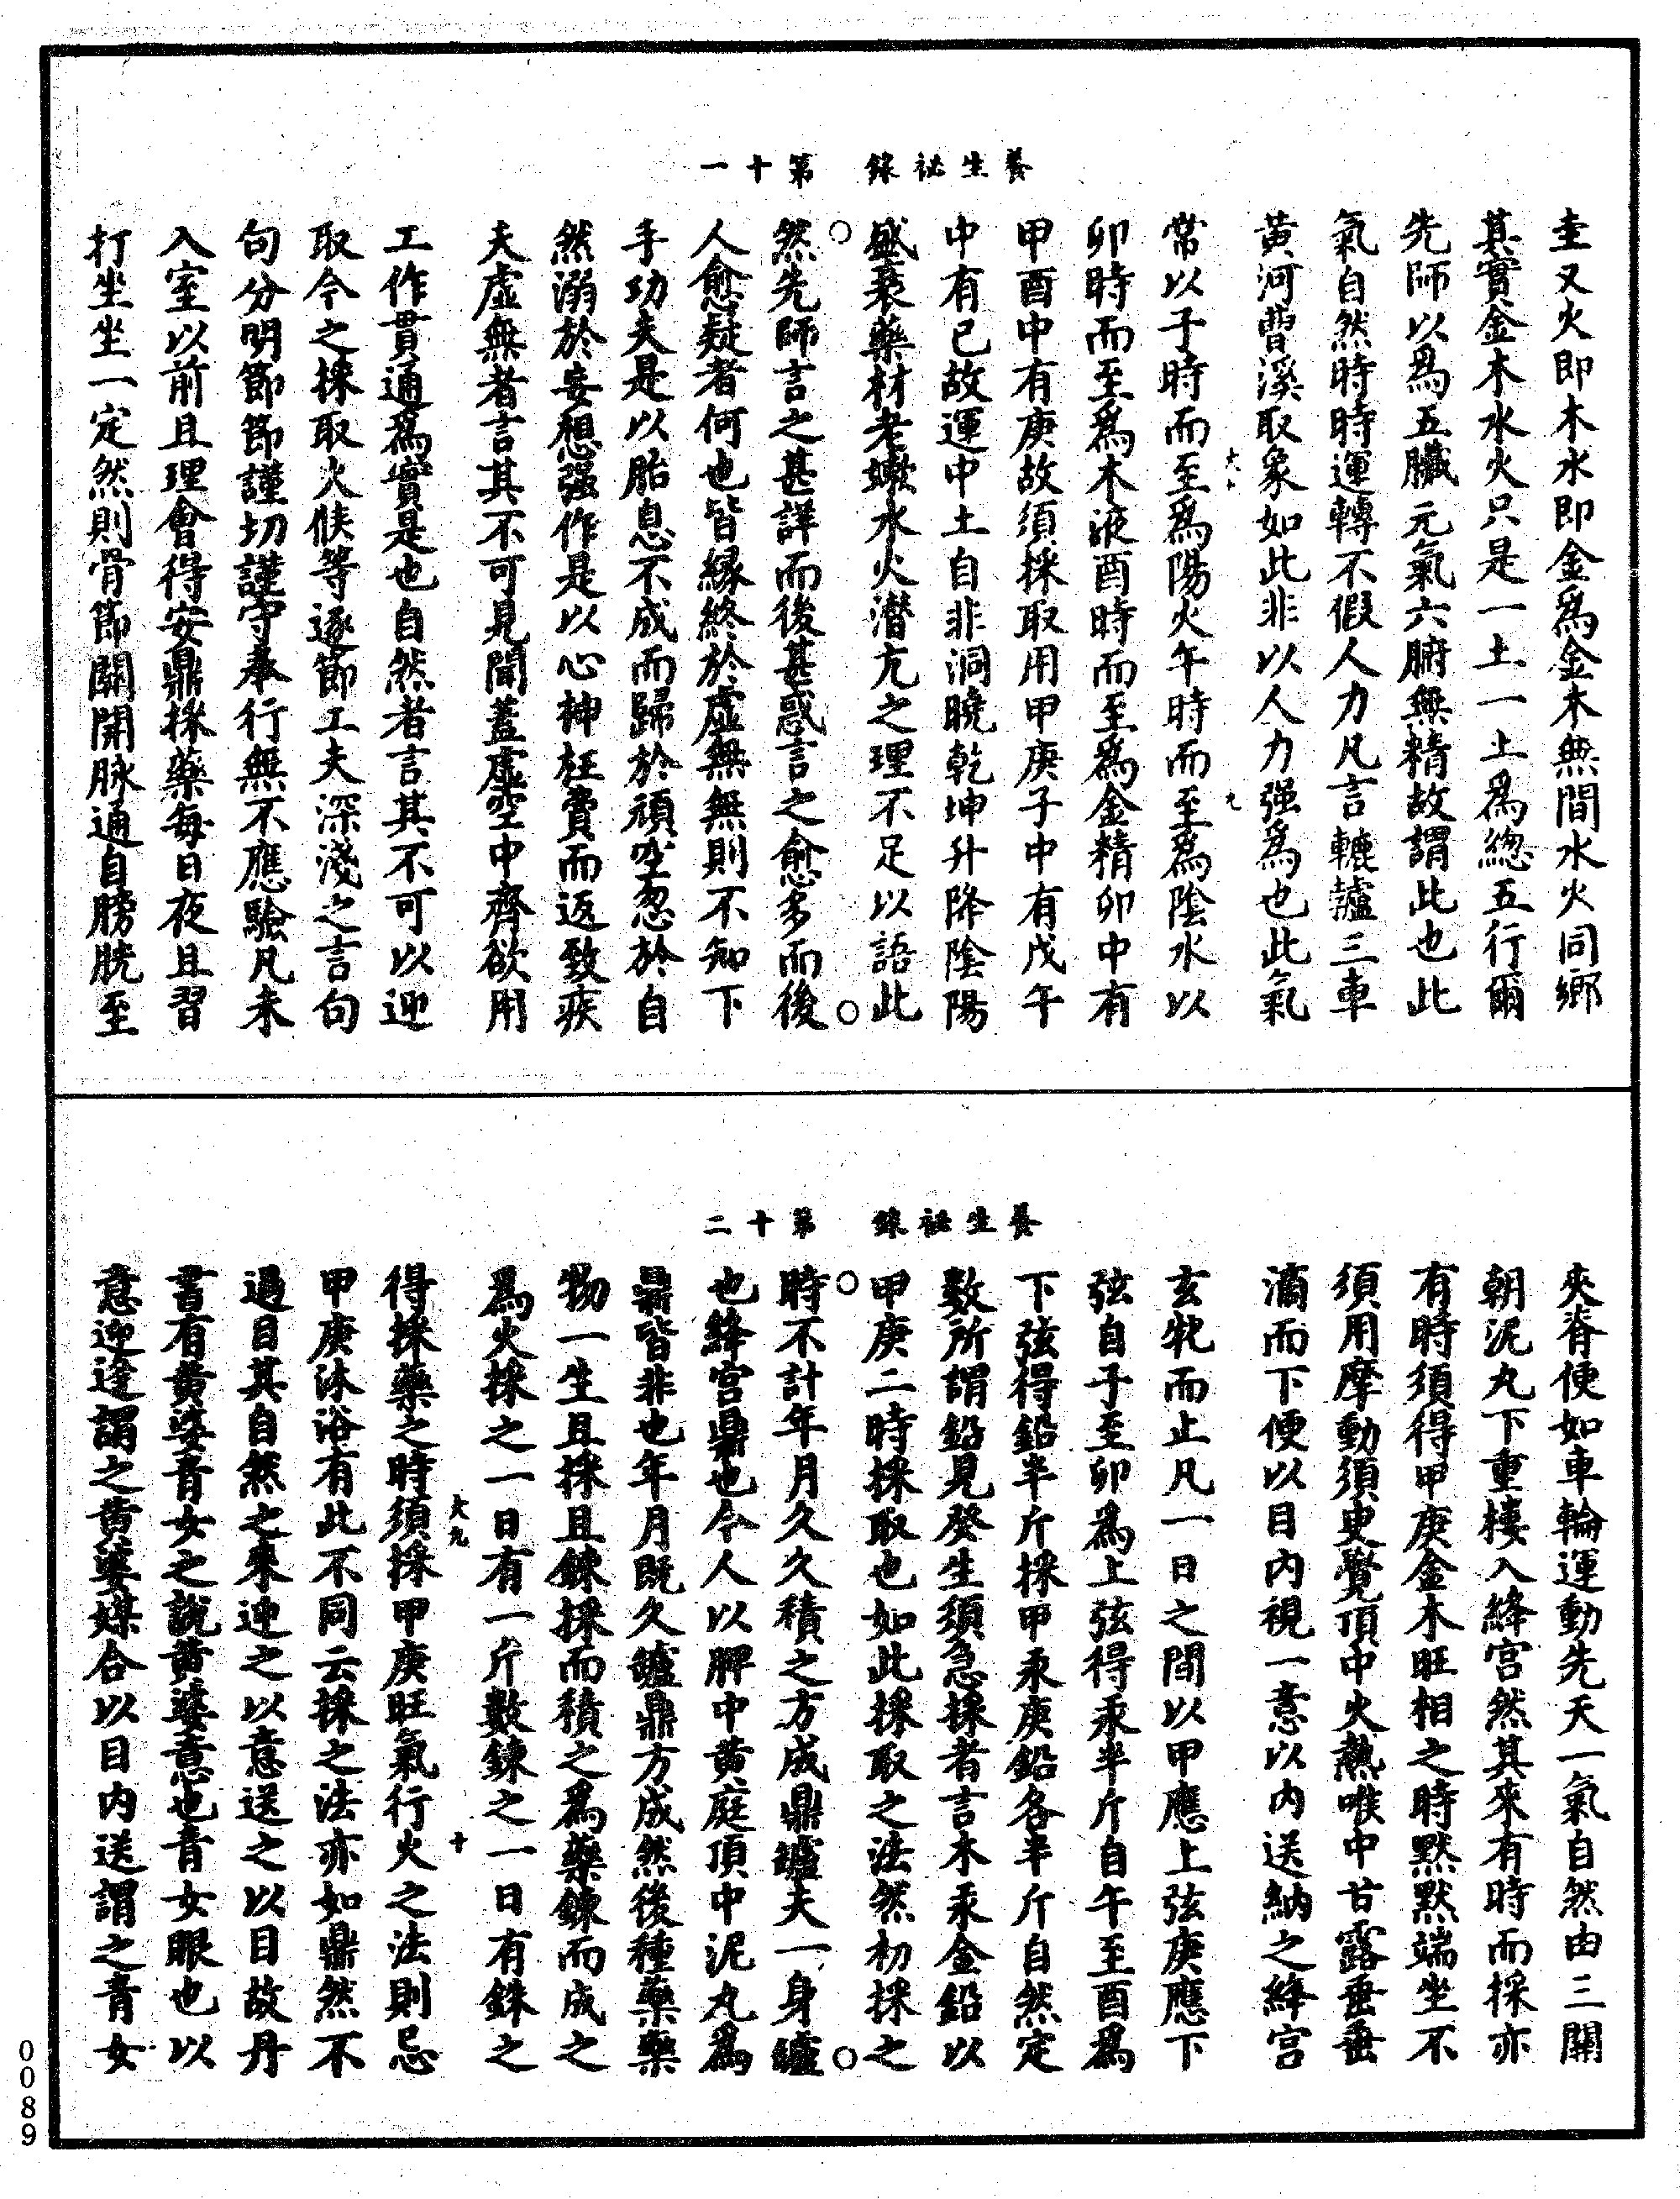 養生祕錄　第十一
圭又火即木水即金爲金木無間水火同鄉
其實金木水火只是一土一土爲總五行爾
先師以爲五臟元氣六腑無精故謂此也此
氣自然時時運轉不假人力凡言轆轤三車
黃河曹溪取象如此非以人力强爲也此氣
常以子時而至爲陽火午時而至爲陰水以
卯時而至爲木液酉時而至爲金精卯中有
甲酉中有庚故須採取用甲庚子中有戊午
中有己故運中土自非洞曉乾坤升降陰陽
盛衰藥材老嫰水火潛亢之理不足以語此
然先師言之甚詳而後甚惑言之愈多而後
人愈疑者何也皆緣終於虛無無則不知下
手功夫是以胎息不成而歸於頑空忽於自
然溺於妄想强作是以心神枉費而返致疾
夫虛無者言其不可見聞蓋虛空中齊欲用
工作貫通爲實是也自然者言其不可以迎
取今之採取火候等逐節工夫深淺之言句
句分明節節謹切謹守奉行無不應驗凡未
入室以前且理會得安鼎採藥每日夜且習
打坐坐一定然則骨節關開脉通自膀胱至
養生祕錄　第十二
夾脊便如車輪運動先天一氣自然由三關
朝泥丸下重樓入絳宮然其來有時而採亦
有時須得甲庚金木旺相之時默默端坐不
須用摩動須臾覺頂中火熱喉中甘露垂垂
滴而下便以目內視一意以內送納之絳宮
玄牝而止凡一日之間以甲應上弦庚應下
弦自子至卯爲上弦得汞半斤自午至酉爲
下弦得鉛半斤採甲汞庚鉛各半斤自然定
數所謂鉛見癸生須急採者言木汞金鉛以
甲庚二時採取也如此採取之法然初採之
時不計年月久久積之方成鼎爐夫一身爐
也絳宮鼎也今人以脾中黃庭頂中泥丸爲
鼎皆非也年月既久爐鼎方成然後種藥藥
物一生且採且鍊採而積之爲藥鍊而成之
爲火採之一日有一斤數鍊之一日有銖之
得採藥之時須採甲庚旺氣行火之法則忌
甲庚沐浴有此不同云採之法亦如鼎然不
過目其自然之來迎之以意送之以目故丹
書有黃婆青女之說黃婆意也青女眼也以
意迎逢謂之黃婆媒合以目內送謂之青女
0089